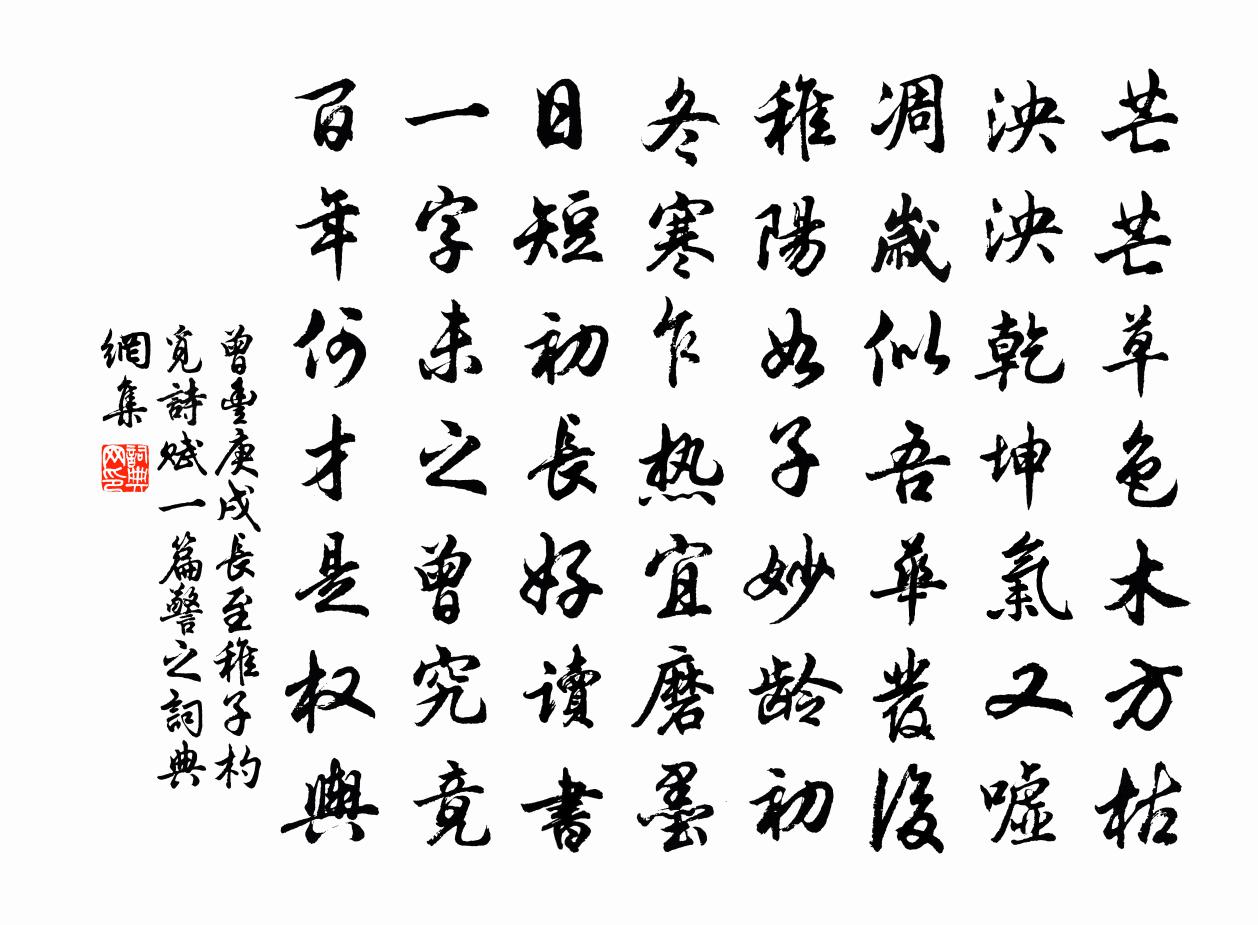 芒芒草色木方枯
泱泱乾坤氣又噓
凋歲似吾華發後
稚陽如子妙齡初
冬寒乍热宜磨墨
日短初長好讀書
一字未之曾究竟
百年何才是权輿
曾豐庚戌長至稚子杓
覓詩赋一篇警之詞典
網集
詞典网印